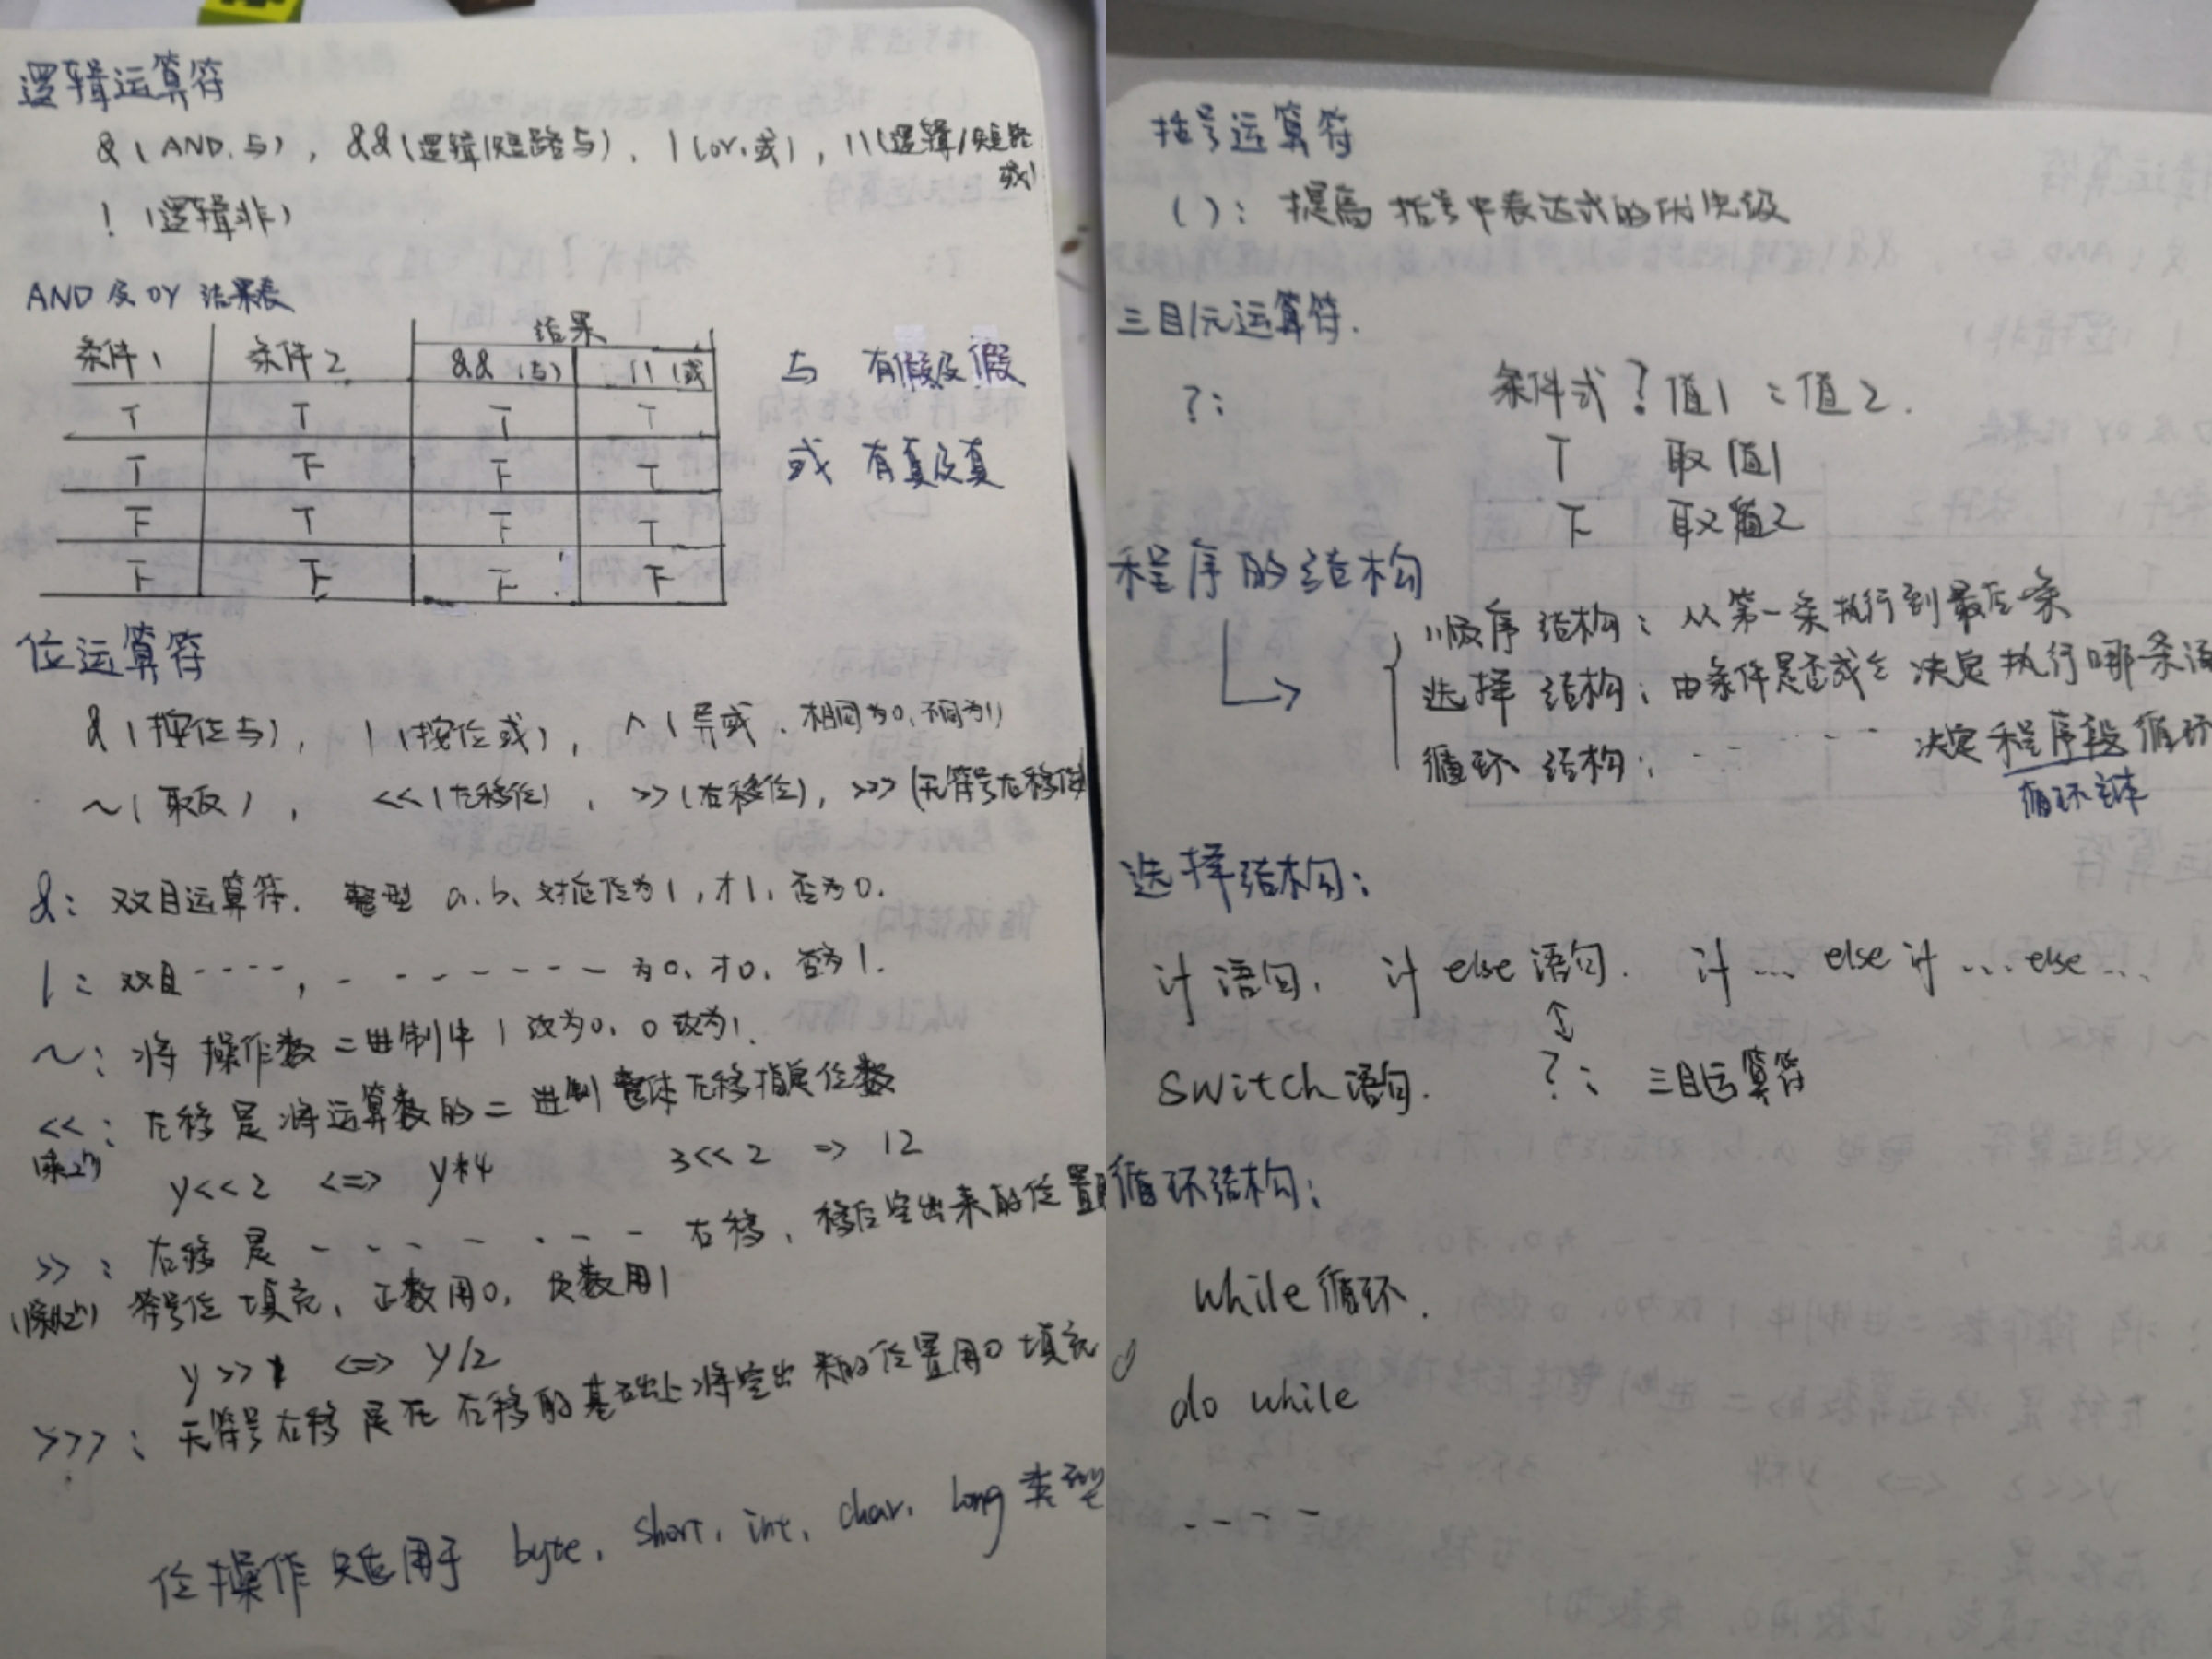 逻辑运算符
&(AND.与), &&(逻辑/短路与), |(or.或), ||(逻辑/短路
或)
!(逻辑非)
AND 及 or 结果表
结果
条件1 条件2 &&(与) ||(或
T T T T
T F F T
F T F T
F F F F
与 有假及假
或 有真及真
位运算符
&(按位与), |(按位或), ^(异或.相同为0,不同为1)
~(取反), <<(左移位), >>(右移位), >>>(无符号右移位)
&: 双目运算符. 整型 a.b. 对应位为1,才1,否为0.
|: 双目----, -------- 为0,才0,否为1.
~: 将操作数二进制中1改为0,0改为1.
<<: 左移是将运算数的二进制整体左移指定位数
y<<2 <=> y*4 3<<2 => 12
>>: 右移是------- 右移,移后空出来的位置
符号位填充,正数用0,负数用1
y>>1 <=> y/2
>>>: 无符号右移是在右移的基础上将空出来的位置用0填充
位操作只适用于 byte, short, int, char, long 类型
括号运算符
(): 提高括号中表达式的优先级
三目/元运算符.
?: 条件式?值1:值2.
T 取值1
F 取值2
程序的结构
顺序结构: 从第一条执行到最后一条
选择结构: 由条件是否成立决定执行哪条语
循环结构: ------ 决定程序段循环
循环体
选择结构:
if语句, if else语句. if ... else if ... else ...
switch语句. ?: 三目运算符
循环结构:
while循环.
do while
----